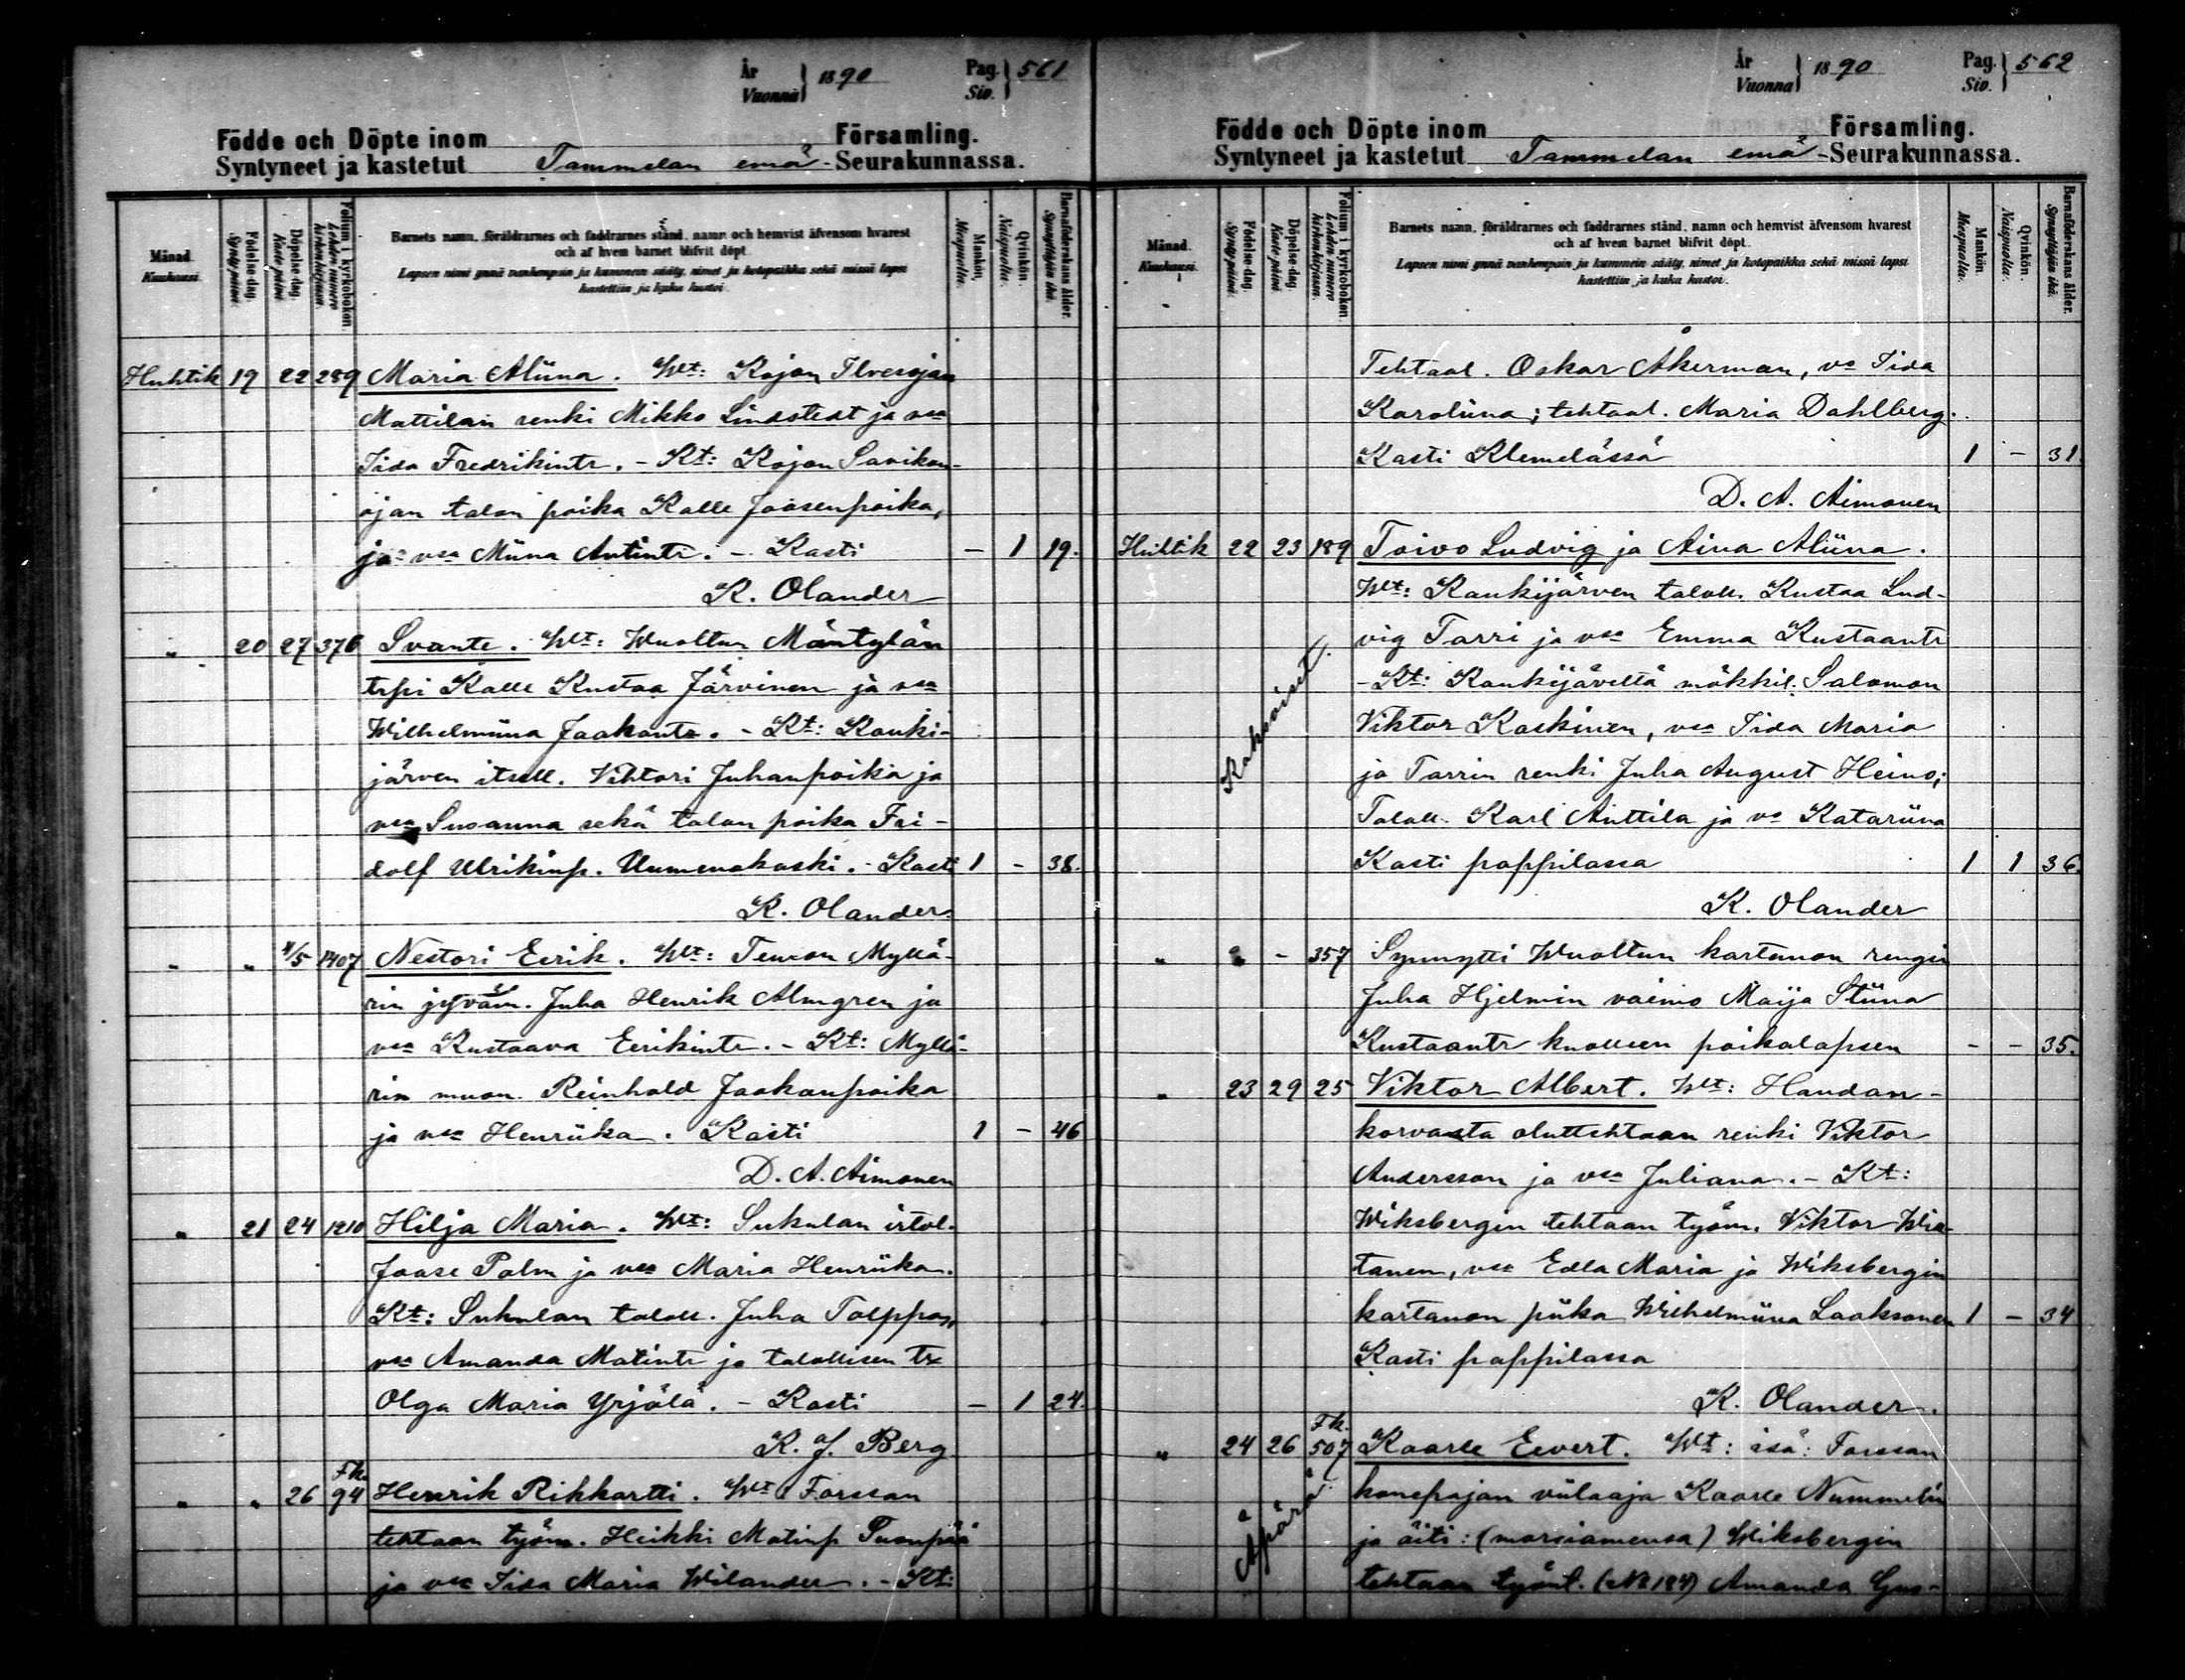 År
Vuonna } 1890
Pag.
Siv. } 561
Födde och Döpte inom Församling.
Syntyneet ja kastetut Tammelan emä- Seurakunnassa.
Månad. Kuukausi.
Födelse-dag. Synty päivä.
Döpelse-dag. Kaste päivä.
Folium i kyrkoboken. Lehden numero kirkonkirjassa.
Barnets namn, föräldrarnes och faddrarnes stånd, namn och hemvist äfvensom hvarest
och af hvem barnet blifvit döpt.
Lapsen nimi ynnä vanhempain ja kummein sääty, nimet ja kotopaikka sekä missä lapsi
kastettiin ja kuka kastoi.
Mankön. Miespuolia.
Qvinkön. Naispuolia.
Barnaföderskans ålder. Synnyttäjän ikä.
Huhtik 19 22 289 Maria Aliina. Wt: Kojon Ilvesojan
Mattilan renki Mikko Lindstedt ja vsa
Iida Fredrikintr. - Kt: Kojon Savikon-
ojan talon poika Kalle Joosenpoika,
ja vsa Miina Antintr. - Kasti - 1 19.
K. Olander
" 20 27 376 Svante. Wt: Wuoltun Mäntylän
trpi Kalle Kustaa Järvinen ja vsa
Wilhelmiina Jaakontr. - Kt: Kauki-
järven itsell. Vihtori Juhanpoika ja
vsa Susanna sekä talon poika Fri-
dolf Ulrikinp. Uumenokoski. - Kasti 1 - 38.
K. Olander
" " 4/5 1407 Nestori Eerik. Wt: Teuron Myllä-
rin jyväm. Juha Henrik Almgren ja
vsa Kustaava Eerikintr. - Kt: Myllä-
rin muon. Reinhold Jaakonpoika
ja vsa Henriika. Kasti 1 - 46
D. A. Aimonen
" 21 24 1210 Hilja Maria. Wt: Sukulan irtol.
Joose Palm ja vsa Maria Henriika.
Kt: Sukulan taloll. Juha Tolppo,
vsa Amanda Matintr ja talollisen tr
Olga Maria Yrjölä. - Kasti - 1 24.
K. J. Berg
" " 26 Fk. 94 Henrik Rikhartti. Wt: Forssan
tehtaan työm. Heikki Matinp Puonpää
ja vsa Iida Maria Wilander. - Kt:
År
Vuonna } 1890
Pag.
Siv. } 562
Födde och Döpte inom Församling.
Syntyneet ja kastetut Tammelan emä- Seurakunnassa.
Månad. Kuukausi.
Födelse-dag. Synty päivä.
Döpelse-dag. Kaste päivä.
Folium i kyrkoboken. Lehden numero kirkonkirjassa.
Barnets namn, föräldrarnes och faddrarnes stånd, namn och hemvist äfvensom hvarest
och af hvem barnet blifvit döpt.
Lapsen nimi ynnä vanhempain ja kummein sääty, nimet ja kotopaikka sekä missä lapsi
kastettiin ja kuka kastoi.
Mankön. Miespuolia.
Qvinkön. Naispuolia.
Barnaföderskans ålder. Synnyttäjän ikä.
Tehtaal. Oskar Åkerman, vo Iida
Karoliina; tehtaal. Maria Dahlberg.
Kasti Klemelässä 1 - 31.
D. A. Aimonen
Huhtik 22 23 189 Toivo Ludvig ja Aina Aliina.
Wt: Kaukijärven taloll. Kustaa Lud-
vig Tarri ja vsa Emma Kustaantr
- Kt: Kaukijäveltä mökkil. Salomon
Kaksoiset.
Viktor Koskinen, vsa Iida Maria
ja Tarrin renki Juha August Heino;
Taloll. Karl Anttila ja vo Katariina
Kasti pappilassa 1 1 36.
K. Olander
" " - 357 Synnytti Wuoltun kartanon rengin
Juha Hjelmin vaimo Maija Stiina
Kustaantr kuolleen poikalapsen - - 35.
" 23 29 25 Viktor Albert. Wt: Haudan-
korvasta oluttehtaan renki Viktor
Andersson ja vsa Juliana. - Kt:
Wiksbergin tehtaan työm. Viktor Wir-
tanen, vsa Edla Maria ja Wiksbergin
kartanon piika Wilhelmiina Laaksonen 1 - 34
Kasti pappilassa
K. Olander.
" 24 26 Fk. 507 Kaarle Eevert. Wt: isä: Forssan
Äpärä
konepajan viilaaja Kaarle Nummelin
ja äiti: (morsiamensa) Wiksbergin
tehtaan työnt. (No 184) Amanda Gus-